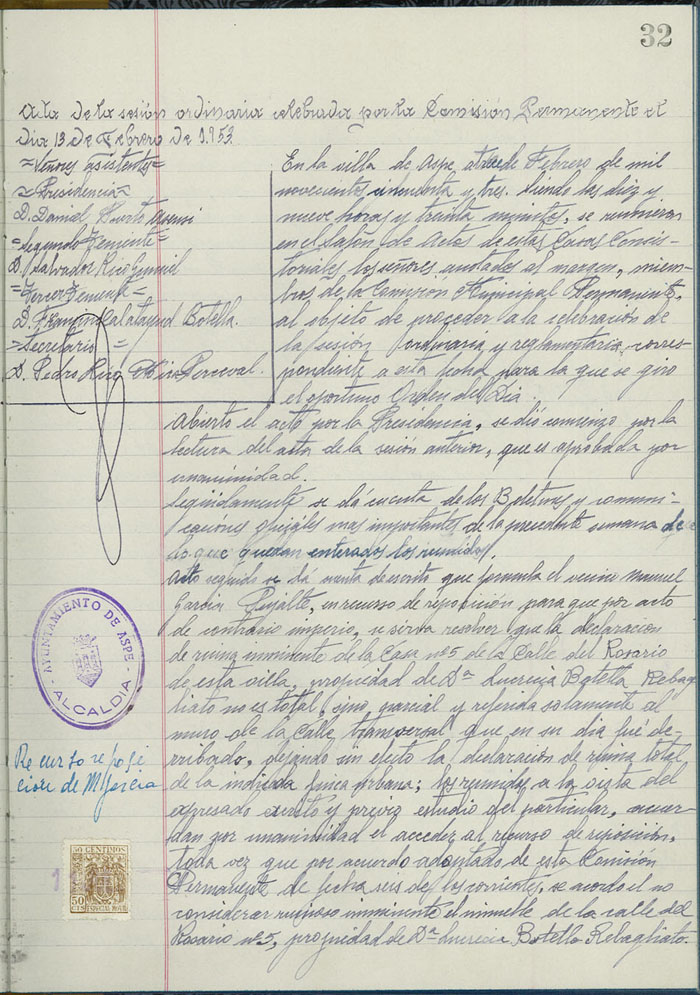 32
Acta de la sesión ordinaria celebrada por la Comisión Permanente el
dia 13 de Febrero de 1.953.
=Señores Asistentes=
=Presidencia=
D. Daniel Puerto Asensi
=Segundo Teniente=
D. Salvador Rico Gumiel
=Tercer Teniente=
D. Francisco Calatayud Botella.
=Secretario=
D. Pedro Rico Perceval.
En la villa de Aspe, a trece de Febrero de mil
novecientos cincuenta y tres. Siendo las diez y
nueve horas y treinta minutos, se reunieron
en el Salón de Actos de estas Casas Consis-
toriales los señores anotados al margen, miem-
bros de la Comision Municipal Permanente,
al objeto de proceder a la celebración de
la sesión ordinaria y reglamentaria, corres-
pondiente a esta fecha para la que se giro
el oportuno Orden del Dia.
Abierto el acto por la Presidencia, se dió comienzo por la
lectura del acta de la sesión anterior, que es aprobada por
unanimidad.
Seguidamente se dá cuenta de los Boletines y comuni-
caciones oficiales mas importantes de la precedente semana de
lo que quedan enterados los reunidos.
Acto seguido se dá cuenta de escrito que formula el vecino Manuel
Garcia Pujalte, en recurso de reposición, para que por acto
de contrario imperio, se sirva resolver que la declaración
de ruina inminente de la Casa nº 5 de la Calle del Rosario
de esta villa, propiedad de Dª Lucrecia Botella Rebag
liato no es total, sino parcial y referida solamente al
muro de la Calle transversal que en su dia fué de-
rribado, dejando sin efecto la declaración de ruina total
de la indicada finca urbana; los reunidos a la vista del
expresado escrito y previo estudio del particular, acuer-
dan por unanimidad el acceder al recurso de reposición,
toda vez que por acuerdo adoptado de esta Comisión
Permanente de fecha seis de los corrientes, se acordo el no
considerar ruinoso inminente el inmueble de la calle del
Rosario nº 5, propiedad de Dª Lucrecia Botella Rebagliato.
AYUNTAMIENTO DE ASPE
ALCALDIA
Recurso reposi
cion de M. Garcia
50 CENTIMOS
50
CTS
ESPECIAL MOVIL